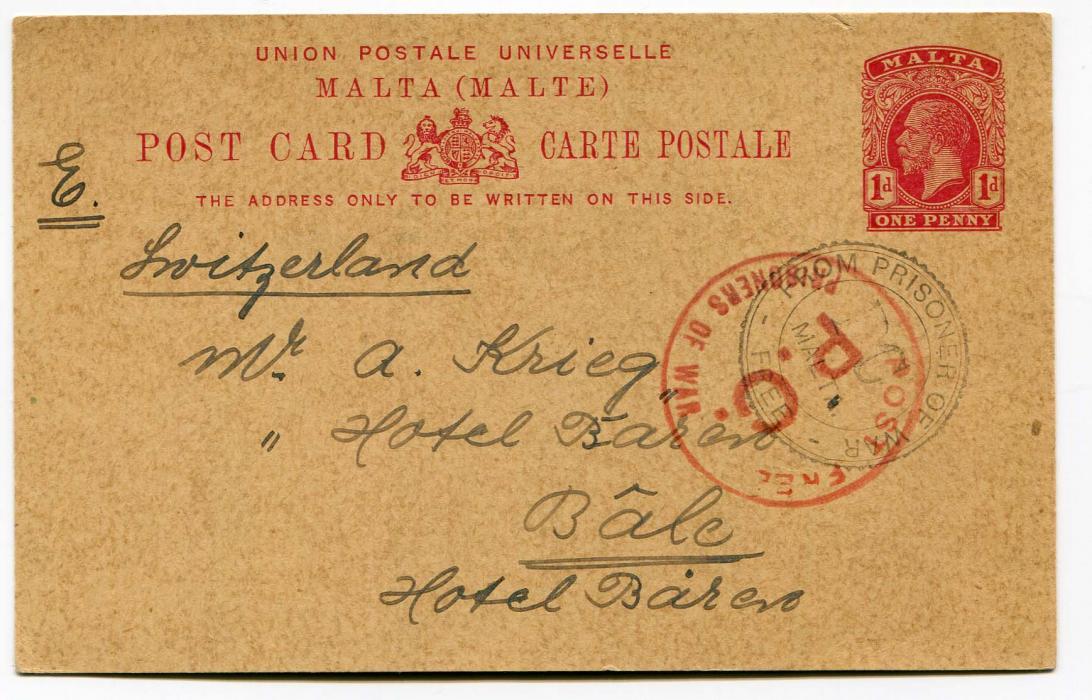 UNION POSTALE UNIVERSELLE
MALTA (MALTE)
POST CARD CARTE POSTALE
THE ADDRESS ONLY TO BE WRITTEN ON THIS SIDE.
MALTA
1d 1d
ONE PENNY
E.
Switzerland
Mr. A. Krieg
" Hotel Bären"
Bâle
Hotel Bären
FROM PRISONER OF WAR
MALTA
- FREE -
PRISONERS OF WAR
P.C.
POST FREE